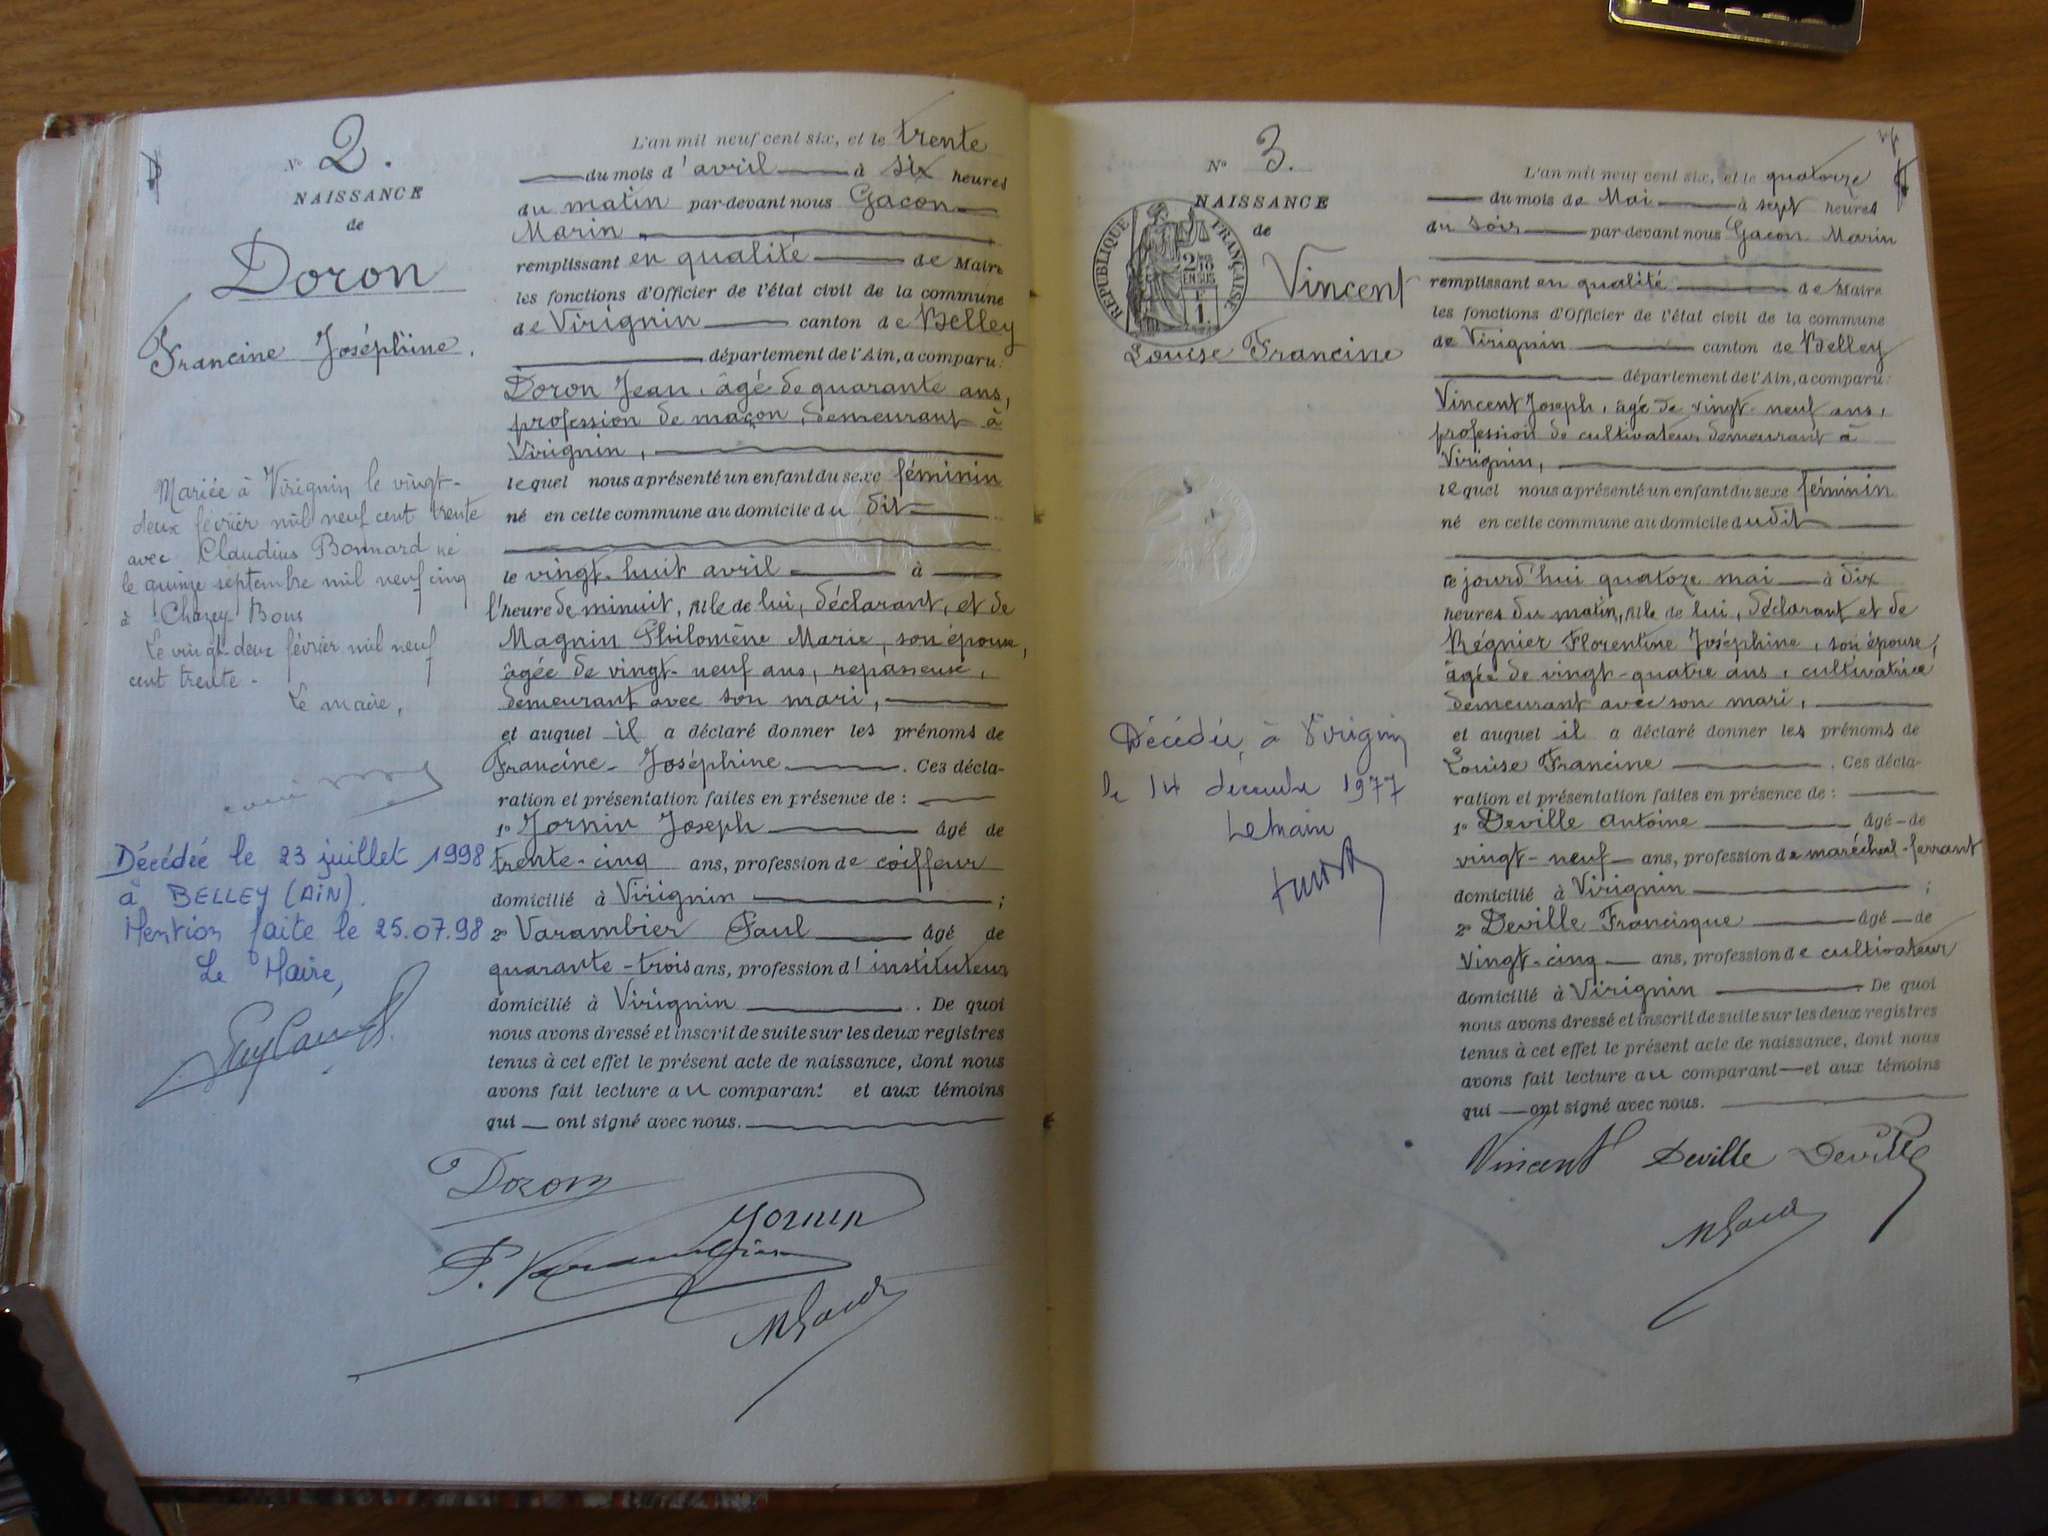 N° 2.
NAISSANCE
de
Doron
Francine Joséphine.
Mariée à Virignin le vingt-
deux février mil neuf cent trente
avec Claudius Bonnard né
le quinze septembre mil neuf cinq
à Chazey Bons
Le vingt deux février mil neuf
cent trente.
Le maire,
Décédée le 23 juillet 1998
à BELLEY (AIN).
Mention faite le 25.07.98
Le Maire,
L'an mil neuf cent six, et le trente
du mois d'avril à six heures
du matin par-devant nous Gacon
Marin
remplissant en qualité de Maire
les fonctions d'Officier de l'état civil de la commune
de Virignin canton de Belley
département de l'Ain, a comparu:
Doron Jean, âgé de quarante ans,
profession de maçon, demeurant à
Virignin,
lequel nous a présenté un enfant du sexe féminin
né en cette commune au domicile du dit
le vingt-huit avril à
l'heure de minuit, née de lui, déclarant, et de
Magnin Philomène Marie, son épouse,
âgée de vingt-neuf ans, repasseuse,
demeurant avec son mari,
et auquel il a déclaré donner les prénoms de
Francine-Joséphine. Ces décla-
ration et présentation faites en présence de :
1° Jornin Joseph âgé de
trente-cinq ans, profession de coiffeur
domicilié à Virignin ;
2° Varambier Paul âgé de
quarante-trois ans, profession d'instituteur
domicilié à Virignin. De quoi
nous avons dressé et inscrit de suite sur les deux registres
tenus à cet effet le présent acte de naissance, dont nous
avons fait lecture au comparant et aux témoins
qui ont signé avec nous.
Doron
Jornin
P. Varambier
N° 3.
NAISSANCE
de
Vincent
Louise Francine
RÉPUBLIQUE FRANÇAISE
2/10
EN SUS
1
Décédée à Virignin
le 14 décembre 1977
Le maire
L'an mil neuf cent six, et le quatorze
du mois de Mai à sept heures
du soir par-devant nous Gacon Marin
remplissant en qualité de Maire
les fonctions d'Officier de l'état civil de la commune
de Virignin canton de Belley
département de l'Ain, a comparu:
Vincent Joseph, âgé de vingt-neuf ans,
profession de cultivateur demeurant à
Virignin,
lequel nous a présenté un enfant du sexe féminin
né en cette commune au domicile dudit
ce jourd'hui quatoze mai à dix
heures du matin, née de lui, déclarant et de
Régnier Florentine Joséphine, son épouse,
âgée de vingt-quatre ans, cultivatrice
demeurant avec son mari,
et auquel il a déclaré donner les prénoms de
Louise Francine. Ces décla-
ration et présentation faites en présence de :
1° Deville Antoine âgé de
vingt-neuf ans, profession de maréchal-ferrant
domicilié à Virignin ;
2° Deville Francisque âgé de
vingt-cinq ans, profession de cultivateur
domicilié à Virignin. De quoi
nous avons dressé et inscrit de suite sur les deux registres
tenus à cet effet le présent acte de naissance, dont nous
avons fait lecture au comparant et aux témoins
qui ont signé avec nous.
Vincent Deville Deville